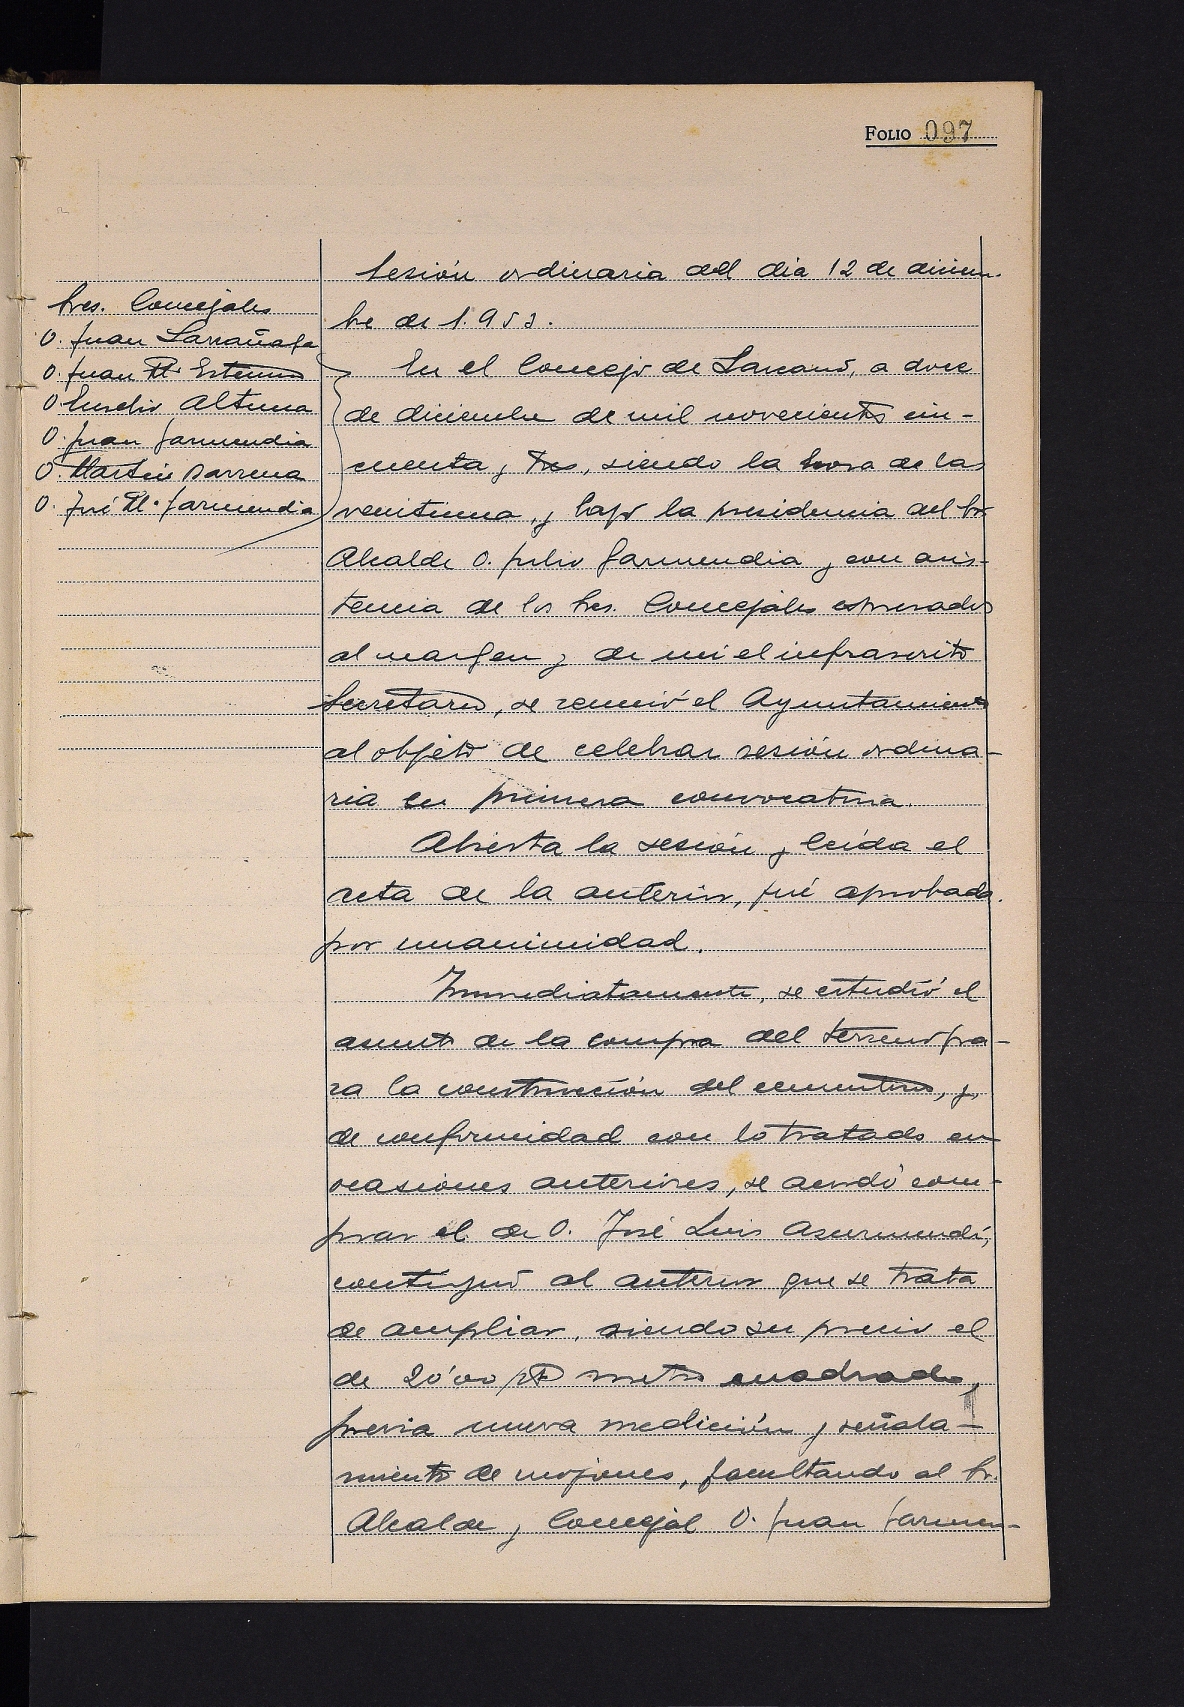 FOLIO 097
Sesión ordinaria del dia 12 de diciem-
bre de 1.953.
Sres. Concejales
D. Juan Larrañaga
D. Juan Mª
D. Eusebio Altuna
D. Juan Garmendia
D. Martin Barrena
D. José Mª Garmendia
En el Concejo de Lazcano, a doce
de diciembre de mil novecientos cin-
cuenta y tres, siendo la hora de las
veintiuna, y bajo la presidencia del Sr.
Alcalde D. Julio Garmendia y con asis-
tencia de los Sres. Concejales expresados
al margen y de mi el infrascrito
Secretario, se reunió el Ayuntamiento
al objeto de celebrar sesión ordina-
ria en primera convocatoria.
Abierta la sesión y leida el
acta de la anterior, fué aprobada
por unanimidad.
Inmediatamente, se estudió el
asunto de la compra del terreno pa-
ra la construcción del cementerio, y,
de conformidad con lo tratado en
ocasiones anteriores, se acordó com-
prar el de D. José Luis Asurmendi,
contiguo al anterior que se trata
de ampliar, siendo su precio el
de 20'00 pts metro cuadrado,
previa nueva medición y señala-
miento de mojones, facultando al Sr.
Alcalde y Concejal D. Juan Garmen-